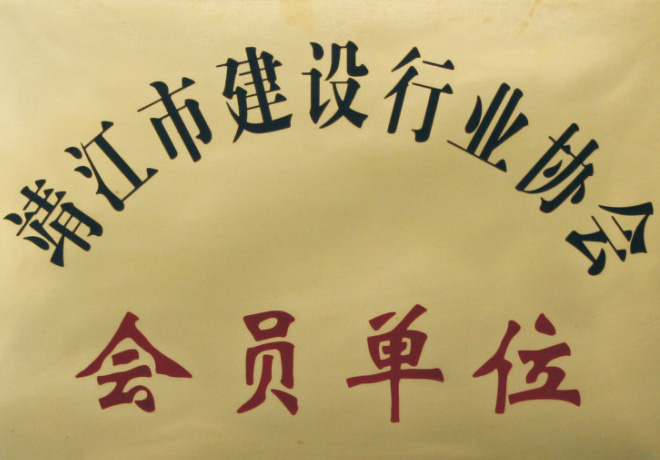 靖江市建设行业协会
会员单位